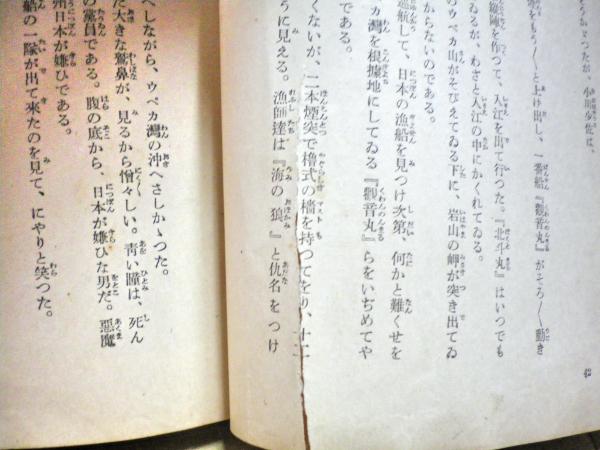 が、小畑少佐は、
帯をもう〳〵と上げ出し、一番船『觀音丸』がそろ〳〵動き
縦陣を作つて、入江を出て行つた。『北斗丸』はいつでも
ゐるが、わざと入江の中にかくれてゐる。
のウペカ山がそびえてゐる下に、岩山の岬が突き出てゐ
からないのである。
巡航して、日本の漁船を見つけ次第、何かと難くせを
カ灣を根據地にしてゐる『觀音丸』らをいぢめてや
である。
くないが、二本煙突で櫓式の檣を持つてをり、十二
うに見える。漁師達は『海の狼』と仇名をつけ
へしながら、ウペカ灣の沖へさしかゝつた。
た大きな鷲鼻が、見るから憎々しい。青い瞳は、死ん
の黨員である。腹の底から、日本が嫌ひな男だ。惡魔
州日本が嫌ひである。
船の一隊が出て來たのを見て、にやりと笑つた。